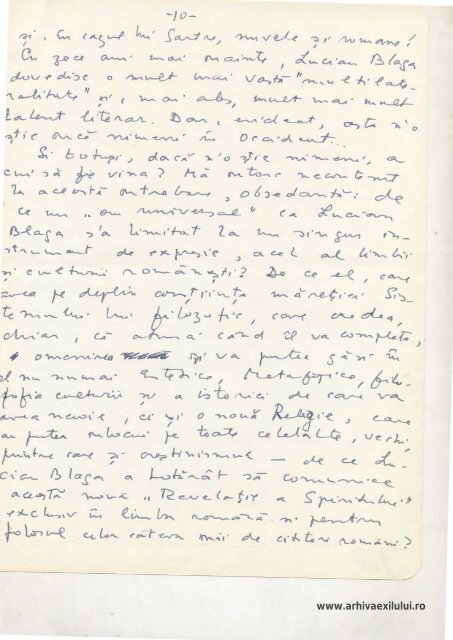 -10-
și, în cazul lui Sartre, nuvele și romane!
Cu zece ani mai înainte, Lucian Blaga
dovedise o mult mai vastă "multilate-
ralitate" și, mai ales, mult mai mult
talent literar. Dar, evident, asta n'o
știe încă nimeni în Occident...
Și totuși, dacă n'o știe nimeni, a
cui să fie vina? Mă întorc necontenit
la această întrebare, obsedantă: de
ce un „om universal" ca Lucian
Blaga s'a limitat la un singur in-
strument de expresie, acel al limbii
și culturii românești? De ce el, care
avea pe deplin conștiința măreției Sis-
temului lui filozofic, care credea,
chiar, că atunci când îl va completa,
omenirea și va putea găsi în
el nu numai Estetica, Metafizica, filo-
zofia culturii și a istoriei de care va
avea nevoie, ci și o nouă Religie, care
ar putea înlocui pe toate celelalte, vechi,
printre care și creștinismul — de ce Lu-
cian Blaga a hotărât să comunice
această nouă „Revelație a Spiritului"
exclusiv în limba română și pentru
folosul celor câteva mii de cititori români?
www.arhivaexilului.ro